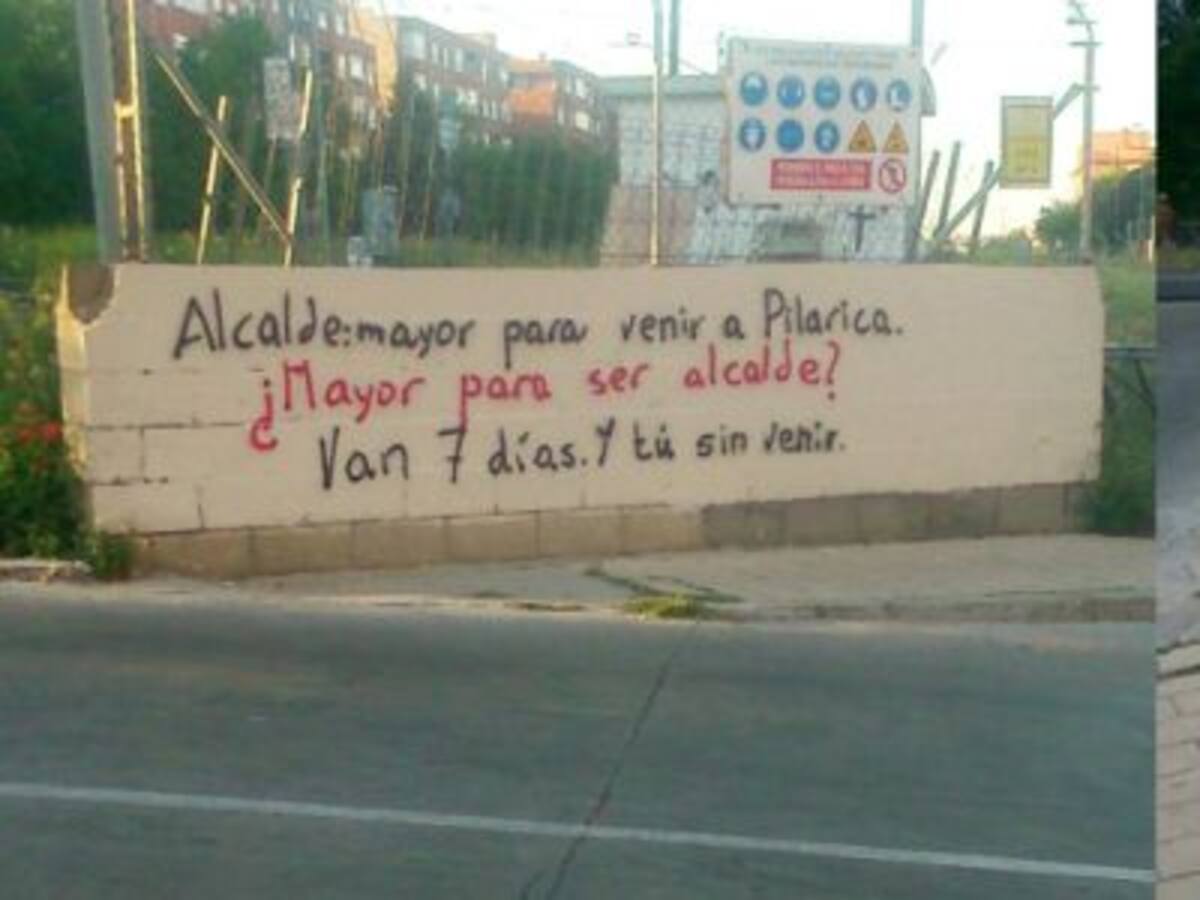 Alcalde:mayor para venir a Pilarica.
¿Mayor para ser alcalde?
Van 7 días. Y tú sin venir.